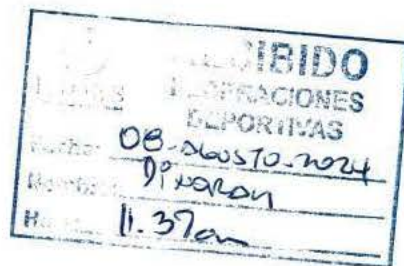 RECIBIDO
OPERACIONES
DEPORTIVAS
Fecha: 08-AGOSTO-2024
Nombre:
Hora: 11.37am